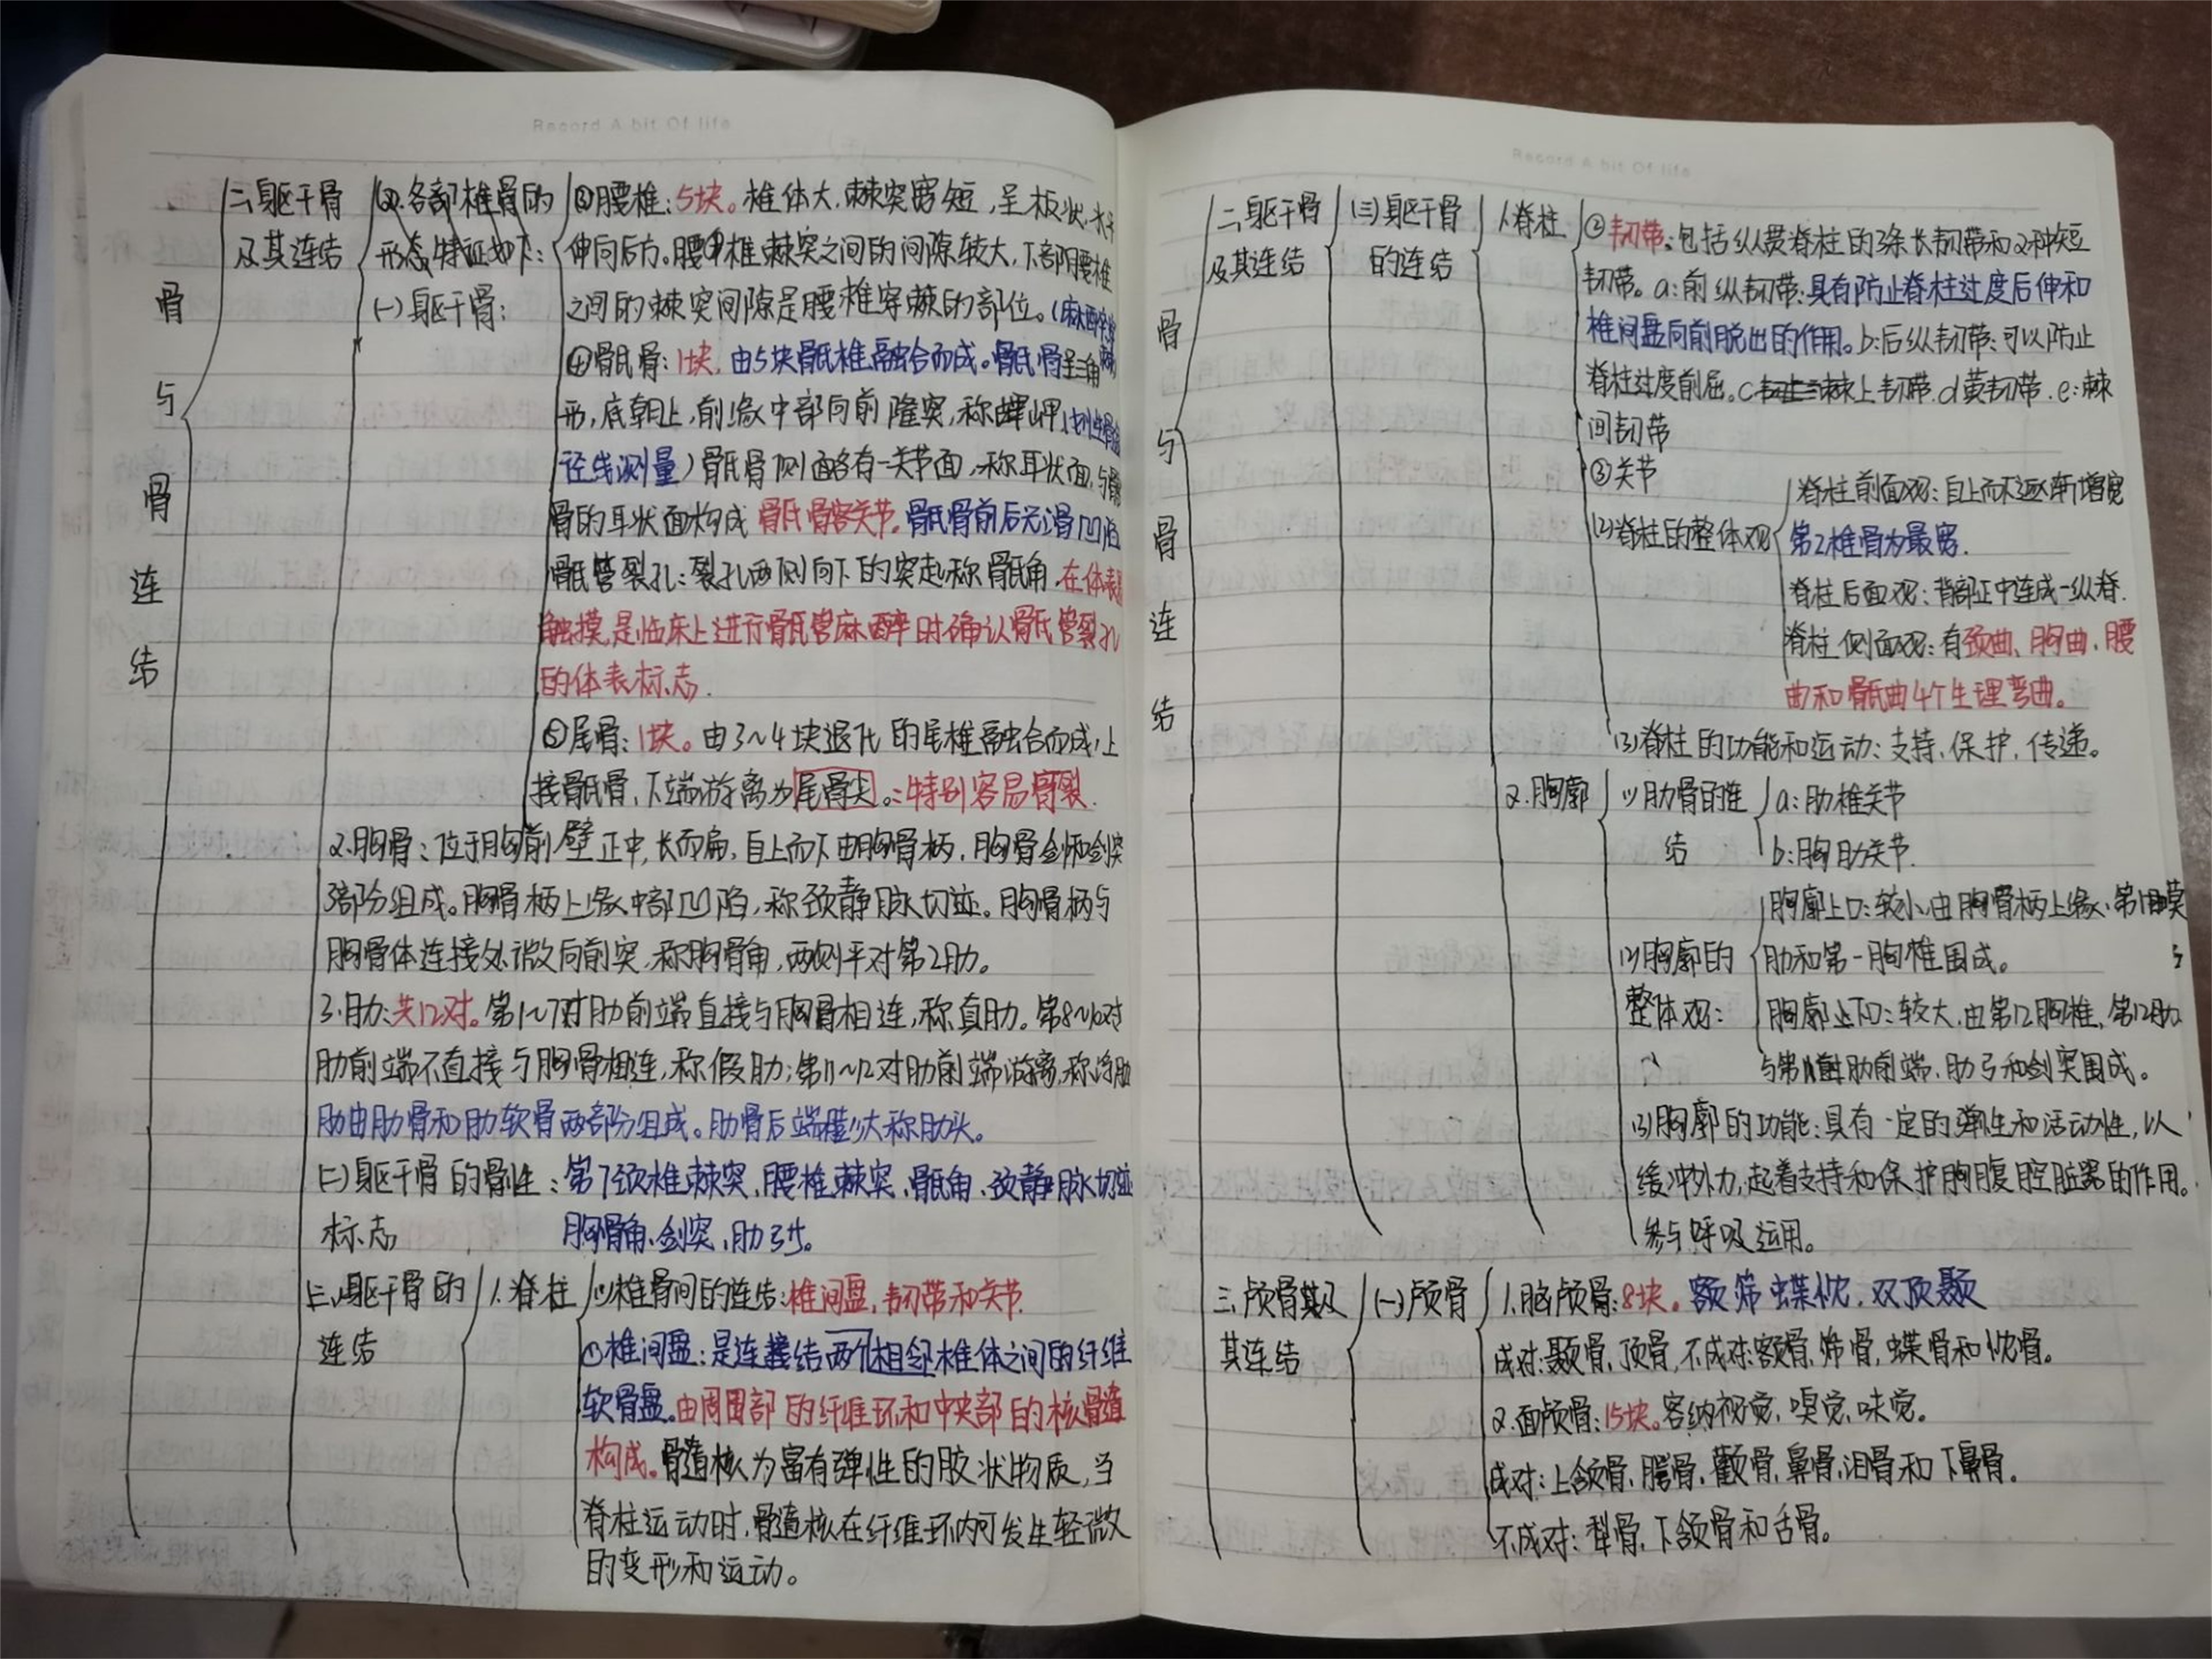 Record A bit Of life
骨与骨连结
二、躯干骨
及其连结
(2).各部椎骨的
形态特征如下:
(一)身区干骨:
③腰椎:5块。椎体大,棘突宽短,呈板状,水平
伸向后方。腰椎棘突之间的间隙较大,下部腰椎
之间的棘突间隙是腰椎穿棘的部位。(麻醉穿
④骶骨:1块,由5块骶椎融合而成。骶骨呈三角
形,底朝上,前缘中部向前隆突,称岬
径线测量)骶骨侧面各有一关节面,称耳状面,与髂
骨的耳状面构成骶髂关节。骶骨前后凹陷
骶管裂孔:裂孔两侧向下的突起称骶角,在体表
触摸,是临床上进行骶管麻醉时确认骶管裂孔
的体表标志.
⑤尾骨:1块。由3~4块退化的尾椎融合而成,上
接骶骨,下端游离为尾骨尖。:特别容易骨裂.
2.胸骨:位于胸前壁正中,长而扁,自上而下由胸骨柄,胸骨剑和剑突
3部分组成。胸骨柄上缘中部凹陷,称颈静脉切迹。胸骨柄与
胸骨体连接处微向前突,称胸骨角,两侧平对第2肋。
3.肋:共12对。第1~7对肋前端直接与胸骨相连,称真肋。第8~10对
肋前端不直接与胸骨相连,称假肋;第11~12对肋前端游离,称浮肋
肋由肋骨和肋软骨两部分组成。肋骨后端膨大称肋头。
(二)身区干骨的骨性:第7颈椎棘突、腰椎棘突、骶角、颈静脉切迹
标志 胸骨角、剑突、肋弓。
三、躯干骨的
连结
1.脊柱
(1)椎骨间的连结:椎间盘,韧带和关节.
①椎间盘:是连接结两个相邻椎体之间的纤维
软骨盘。由周围部的纤维环和中央部的核骨遗
构成。髓核为富有弹性的胶状物质,当
脊柱运动时,髓核在纤维环内可发生轻微
的变形和运动。
Record A bit Of life
骨与骨连结
二、躯干骨
及其连结
(三)躯干骨
的连结
1.脊柱
②韧带:包括纵贯脊柱的3条长韧带和2种短
韧带。a:前纵韧带:具有防止脊柱过度后伸和
椎间盘向前脱出的作用。b:后纵韧带:可以防止
脊柱过度前屈。c棘上韧带.d黄韧带.e:棘
间韧带
③关节
(2)脊柱的整体观
脊柱前面观:自上而下逐渐增宽
第2椎骨为最宽.
脊柱后面观:背部正中连成一纵脊.
脊柱侧面观:有颈曲、胸曲、腰
曲和骶曲4个生理弯曲。
(3)脊柱的功能和运动:支持、保护、传递。
2.胸廓
(1)肋骨的连
结
a:肋椎关节
b:胸肋关节.
(2)胸廓的
整体观:
胸廓上口:较小,由胸骨柄上缘、第1
肋和第一胸椎围成。
胸廓下口:较大,由第12胸椎,第12肋
与第11肋前端,肋弓和剑突围成。
(3)胸廓的功能:具有一定的弹性和活动性,以
缓冲外力,起着支持和保护胸腹腔脏器的作用。
参与呼吸运用。
三、颅骨及
其连结
(一)颅骨
1.脑颅骨:8块。额筛蝶枕.双顶颞
成对:颞骨,顶骨,不成对:额骨,筛骨,蝶骨和枕骨。
2.面颅骨:15块。容纳视觉、嗅觉、味觉。
成对:上颌骨,腭骨,颧骨,鼻骨,泪骨和下鼻骨.
不成对:犁骨、下颌骨和舌骨。